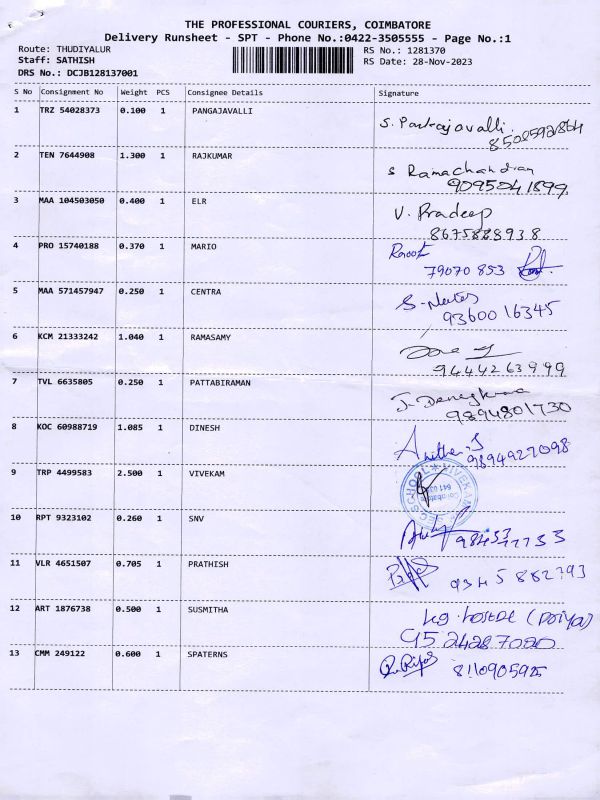 THE PROFESSIONAL COURIERS, COIMBATORE
Delivery Runsheet - SPT - Phone No.:0422-3505555 - Page No.:1
Route: THUDIYALUR RS No.: 1281370
Staff: SATHISH RS Date: 28-Nov-2023
DRS No.: DCJB128137001
S No Consignment No Weight PCS Consignee Details Signature
1 TRZ 54028373 0.100 1 PANGAJAVALLI S. Pankajavalli
8508592864
2 TEN 7644908 1.300 1 RAJKUMAR S Ramachandran
9095041899
3 MAA 104503050 0.400 1 ELR V. Pradeep
8675888938
4 PRO 15740188 0.370 1 MARIO
79070 853
5 MAA 571457947 0.250 1 CENTRA
9360016345
6 KCM 21333242 1.040 1 RAMASAMY
9444263999
7 TVL 6635805 0.250 1 PATTABIRAMAN
9894801730
8 KOC 60988719 1.085 1 DINESH
9894927098
9 TRP 4499583 2.500 1 VIVEKAM
SCHOOL VIVEKAM
10 RPT 9323102 0.260 1 SNV
11 VLR 4651507 0.705 1 PRATHISH 9345882793
12 ART 1876738 0.500 1 SUSMITHA
95 24287020
13 CMM 249122 0.600 1 SPATERNS 8110905925